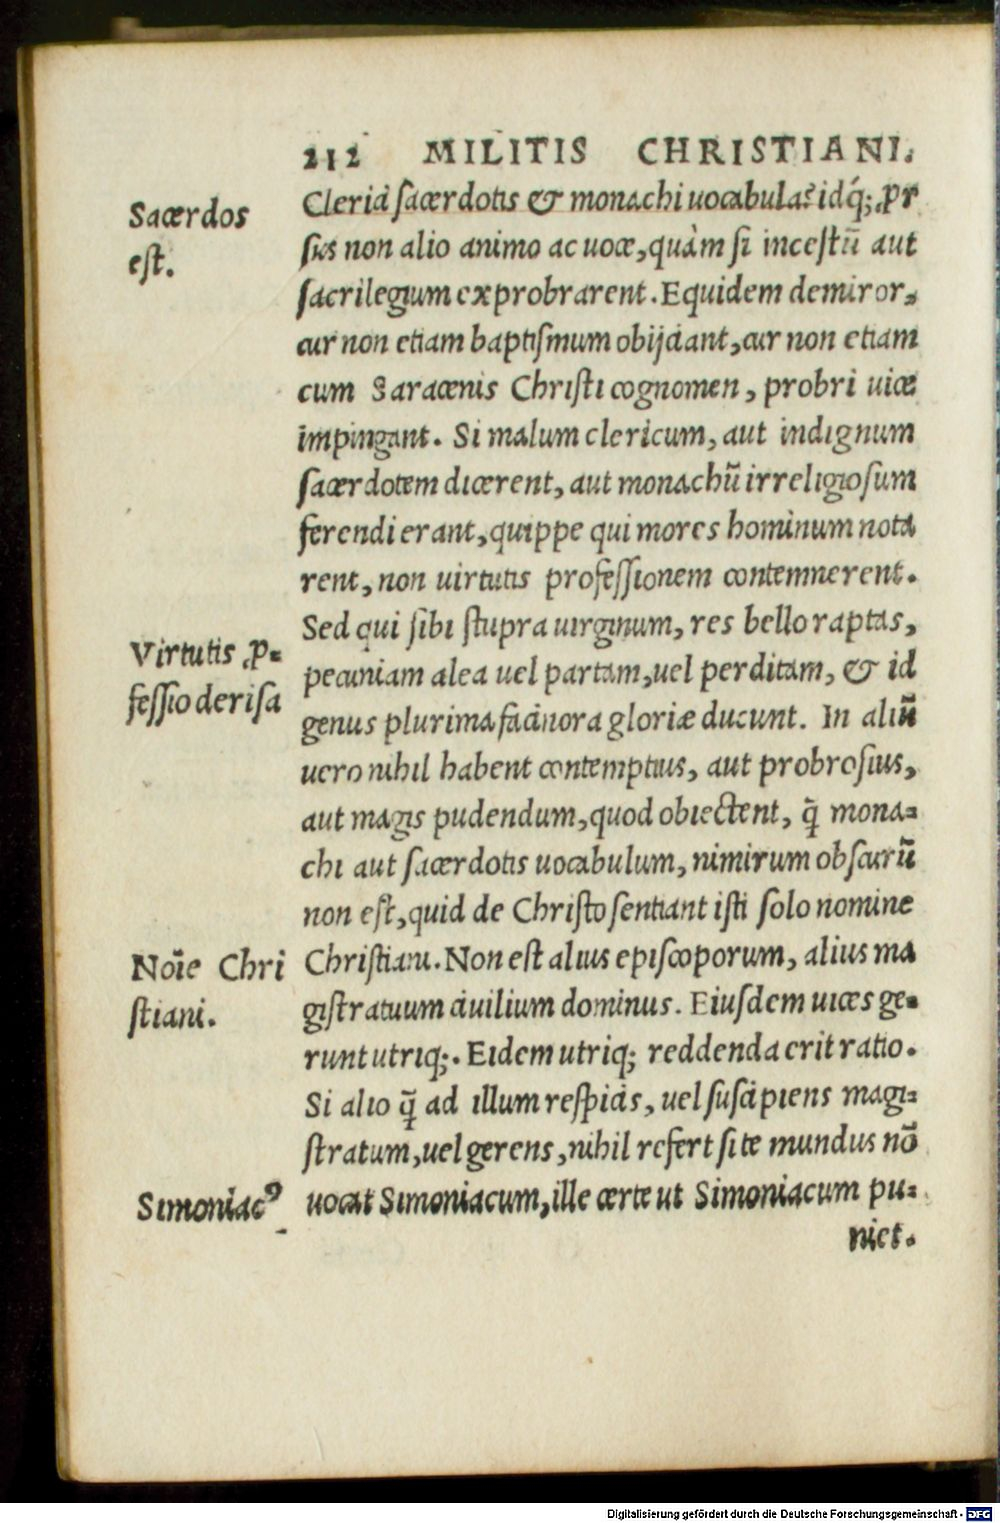 212 MILITIS CHRISTIANI.
Sacerdos
est.
Clerici sacerdotis & monachi uocabula? idq́;, ꝓr
sus non alio animo ac uoce, quàm si incestũ aut
sacrilegium exprobrarent. Equidem demiror,
cur non etiam baptismum obijciant, cur non etiam
cum Saracenis Christi cognomen, probri uice
impingant. Si malum clericum, aut indignum
sacerdotem dicerent, aut monachũ irreligiosum
ferendi erant, quippe qui mores hominum nota
rent, non uirtutis professionem contemnerent.
Sed qui sibi stupra uirginum, res bello raptas,
Virtutis ꝓ-
fessio derisa
pecuniam alea uel partam, uel perditam, & id
genus plurima facinora gloriæ ducunt. In aliũ
uero nihil habent contemptius, aut probrosius,
aut magis pudendum, quod obiectent, q̃ mona-
chi aut sacerdotis uocabulum, nimirum obscurũ
non est, quid de Christo sentiant isti solo nomine
Noĩe Chri
stiani.
Christiani. Non est alius episcoporum, alius ma
gistratuum ciuilium dominus. Eiusdem uices ge-
runt utriq;. Eidem utriq; reddenda erit ratio.
Si alio q̃ ad illum respicis, uel suscipiens magi-
stratum, uel gerens, nihil refert si te mundus nõ
Simoniacꝰ
uocat Simoniacum, ille certe ut Simoniacum pu-
niet.
Digitalisierung gefördert durch die Deutsche Forschungsgemeinschaft - DFG